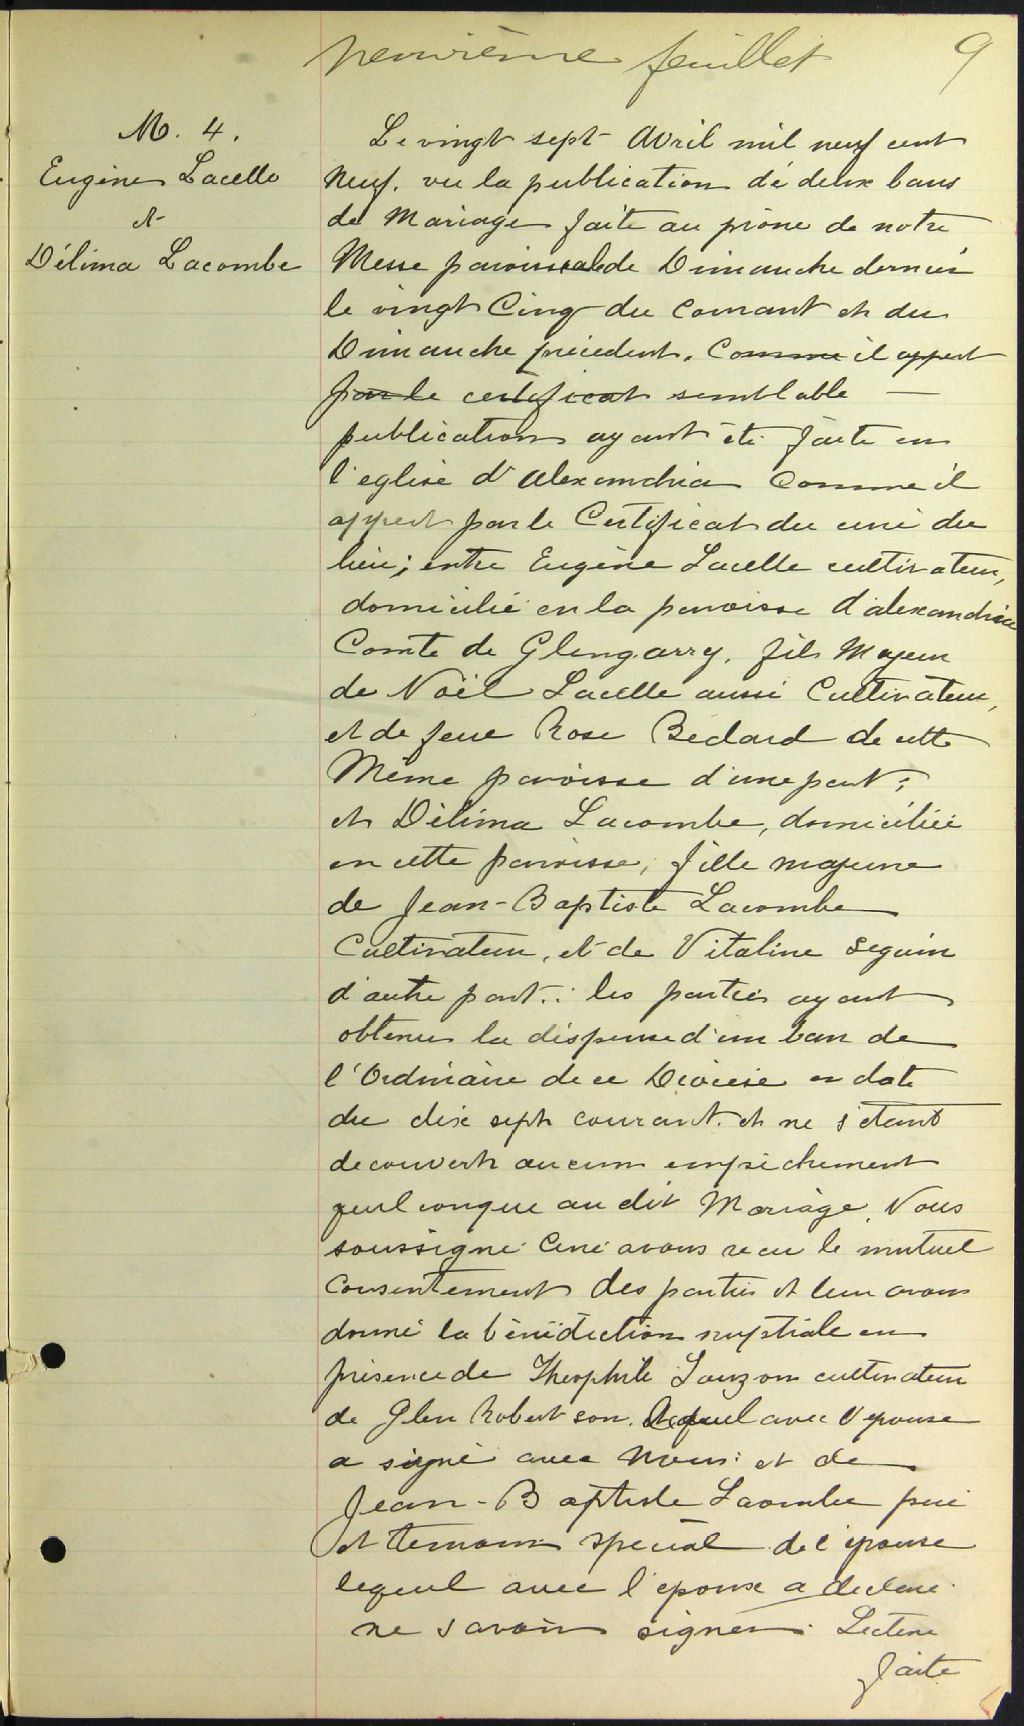 neuvième feuillet 9
M. 4.
Eugène Lacelle
et
Délima Lacombe
Le vingt sept Avril mil neuf cent
neuf. vu la publication de deux bans
de Mariage faite au prône de notre
Messe paroissiale de Dimanche dernier
le vingt Cinq du Courant et du
Dimanche précédent. Comme il appert
par le certificat semblable —
publication ayant été faite en
l'eglise d'Alexandria Comme il
appert par le Certificat du curé du
lieu; entre Eugène Lacelle cultivateur,
domicilié en la paroisse d'alexandria
Comté de Glengarry, fils Majeur
de Noël Lacelle aussi Cultivateur,
et de feue Rose Bédard de cette
Même paroisse d'une part;
et Délima Lacombe, domiciliée
en cette paroisse, fille majeure
de Jean-Baptiste Lacombe
Cultivateur, et de Vitaline Seguin
d'autre part.: les parties ayant
obtenu la dispense d'un ban de
l'Ordinaire de ce Diocèse en date
du dix sept courant. et ne s'étant
decouvert aucun empêchement
quelconque au dit Mariage. Nous
soussigné Curé avons reçu le mutuel
Consentement des parties et leur avons
donné la bénédiction nuptiale en
présence de Theophile Sauzon cultivateur
de Glen Robertson. lequel avec l'epouse
a signé avec Nous: et de
Jean-Baptiste Lacombe père
et temoin special de l'épouse
lequel avec l'epoux a declaré
ne savoir signer. Lecture
faite